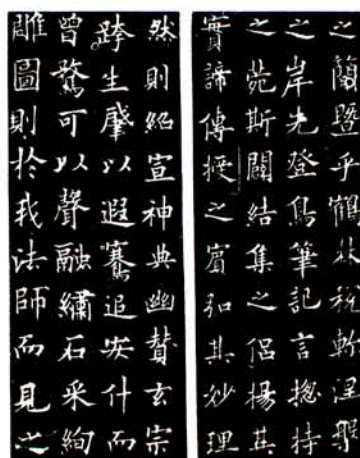 之蘭暨乎鶴林稅軫涅槃
之岸先登鳥筆記言揔持
之菀斯闢結集之侶揚其
實諦傳授之賓弘其妙理
然則紹宣神典幽贊玄宗
跨生肇以遐騫追安什而
曾騖可以聲融繡石采絢
雕圖則於我法師而見之